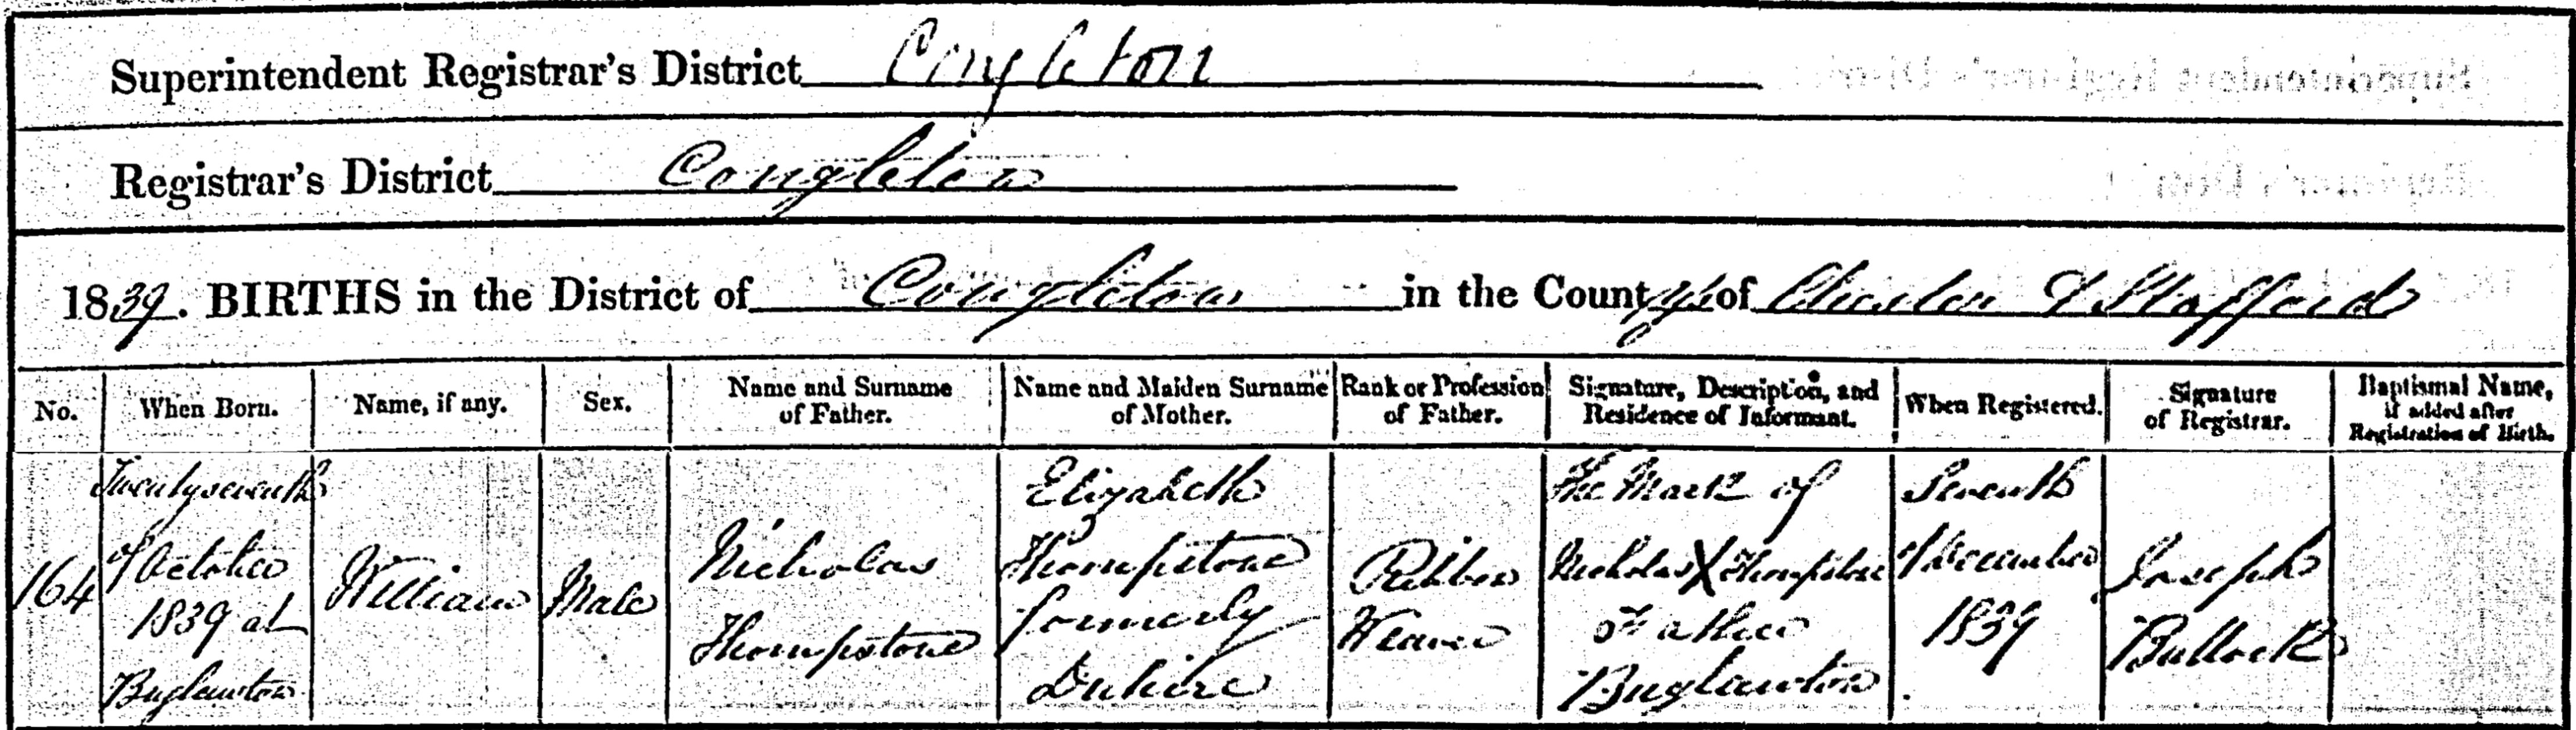 Superintendent Registrar's District Congleton
Registrar's District Congleton
1839. BIRTHS in the District of Congleton in the County of Chester & Stafford
No.
When Born.
Name, if any.
Sex.
Name and Surname
of Father.
Name and Maiden Surname
of Mother.
Rank or Profession
of Father.
Signature, Description, and
Residence of Informant.
When Registered.
Signature
of Registrar.
Baptismal Name,
if added after
Registration of Birth.
164
Twentyseventh
of October
1839 at
Buglawton
William
Male
Nicholas
Thompstone
Elizabeth
Thompstone
formerly
Ribbon
Weaver
The Mark of
Nicholas X Thompstone
Father
Buglawton
Seventh
of December
1839
Joseph
Bullock